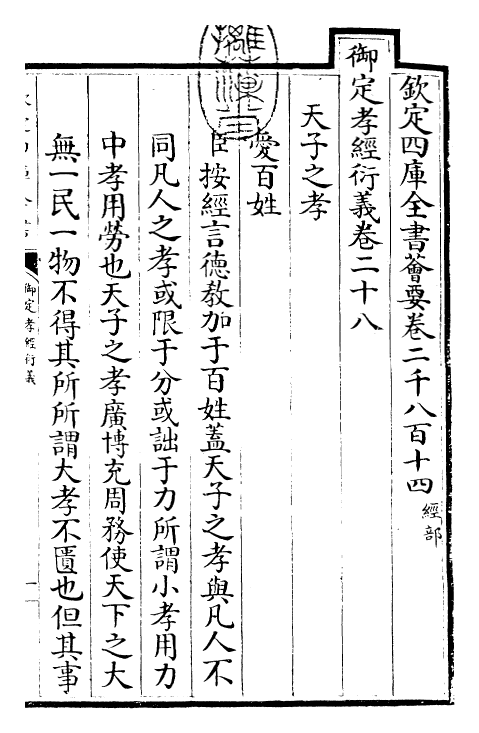 欽定四庫全書薈要卷二千八百十四 經部
御定孝經衍義卷二十八
天子之孝
愛百姓
臣按經言德教加于百姓蓋天子之孝與凡人不
同凡人之孝或限于分或詘于力所謂小孝用力
中孝用勞也天子之孝廣博充周務使天下之大
無一民一物不得其所所謂大孝不匱也但其事
御定孝經衍義
一